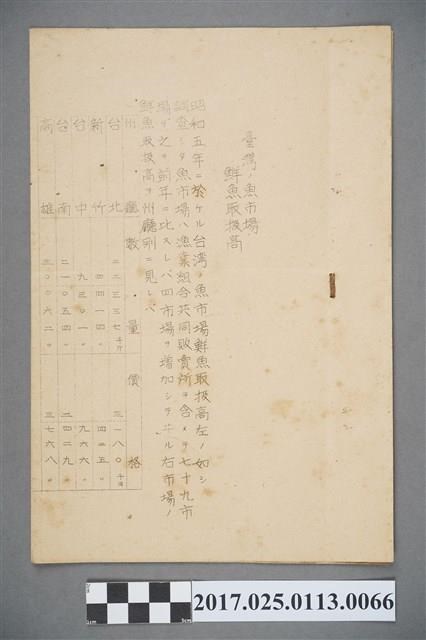 臺灣ノ魚市場
鮮魚取扱高
昭和五年ニ於ケル台湾ノ魚市場鮮魚取扱高左ノ如シ
調査シタ魚市場ハ漁業組合共同販賣所ヲ含メテ七十九市
場ダ之ヲ前年ニ比スレバ四市場ヲ増加シテヰル右市場ノ
鮮魚取扱高ヲ州廳別ニ見レバ
州廳 數量 價格
台北 二二三三七千斤 三一八〇千円
新竹 四四一四〃
台中 九三〇一〃 九六六〃
台南 二一〇五四〃 二四二九〃
高雄 三〇〇六二〃 三七六八〃
2cm
2017.025.0113.0066